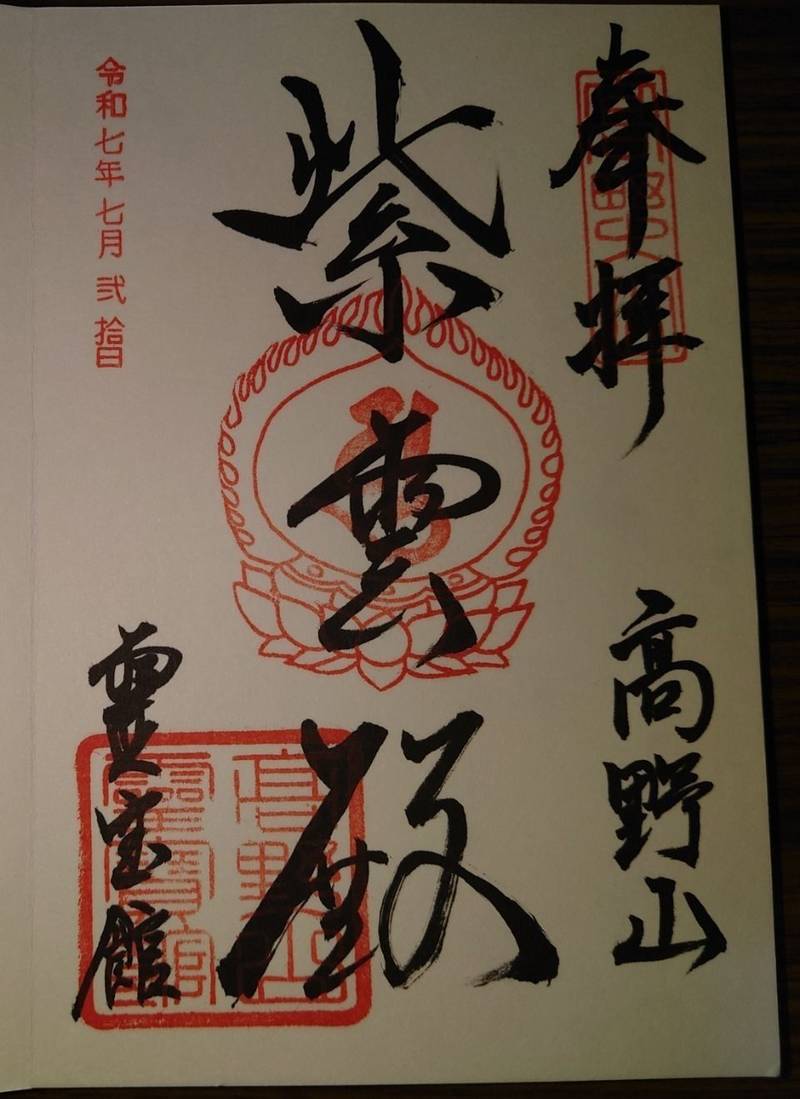 奉拝
高野山
紫雲殿
霊宝館
令和七年七月弐拾日
高野山霊寶館